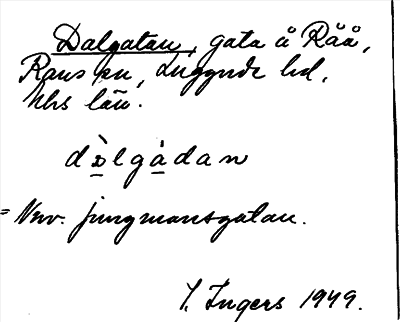 Dalgatan, gata å Råå,
Raus sn, Luggude hd,
Mhs län.
dàlgàdan
= Nuv. Jungmansgatan.
I. Ingers 1949.